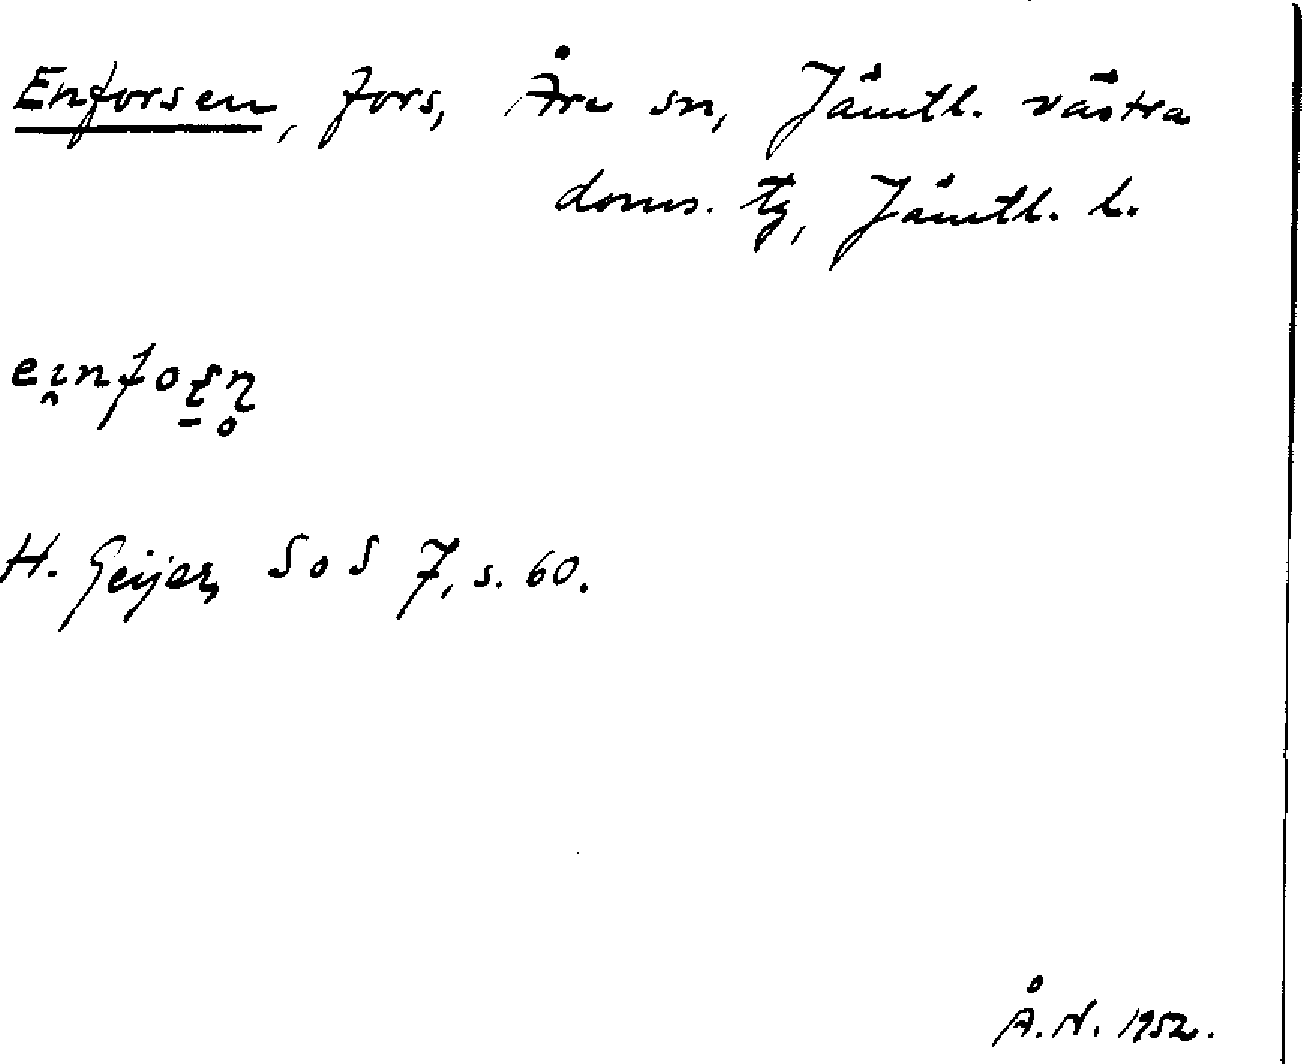 Enforsen, fors, Åre sn, Jämtl. västra
doms. tg, Jämtl. l.
ei̯nfoʂ̠ɳ̥
H. Geijer, SoS 7, s. 60.
Å. N. 1952.